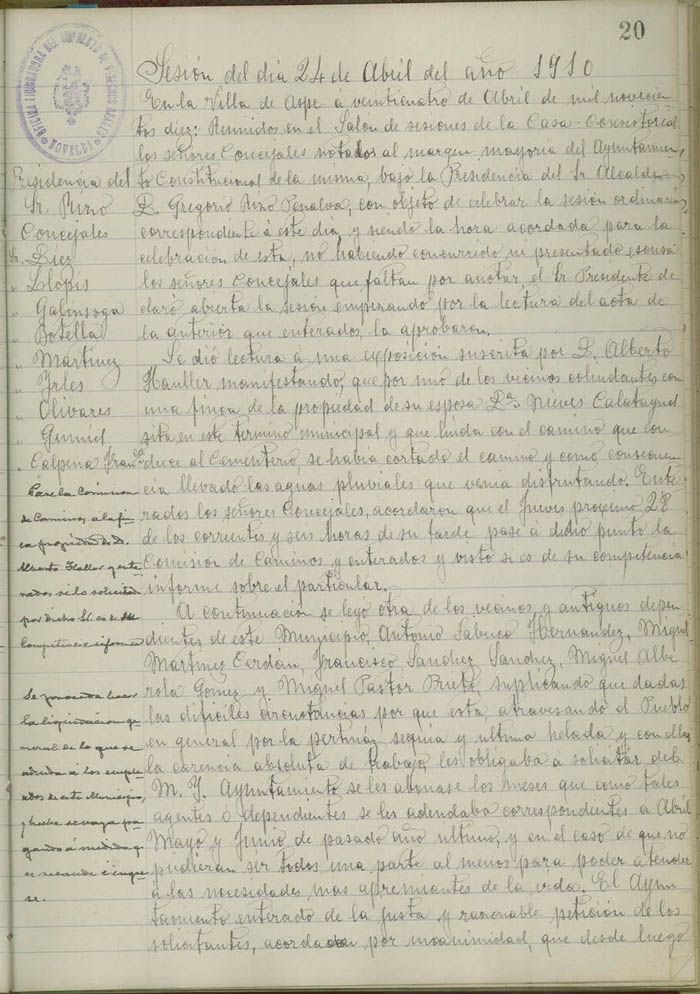 20
OFICINA LIQUIDADORA DEL IMPUESTO DE DERECHOS REALES
NOVELDA
Sesión del dia 24 de Abril del año 1910
En la Villa de Aspe á veinticuatro de Abril de mil novecien
tos diez: Reunidos en el Salon de sesiones de la Casa-Consistorial
los señores Concejales notados al margen, mayoria del Ayuntamien
to Constitucional de la misma, bajo la Presidencia del Sr Alcalde
D. Gregorio Rizo Penalva, con objeto de celebrar la sesión ordinaria
correspondiente á este dia, y siendo la hora acordada para la
celebracion de esta, no habiendo concurrido ni presentado escusa
los señores Concejales que faltan por anotar, el Sr Presidente de
claró abierta la sesión empezando por la lectura del acta de
la anterior que enterados, la aprobaron.
Presidencia del
Sr. Rizo
Concejales
Sr. Diez
" Llopis
" Galinsoga
" Botella
" Martinez
" Yrles
" Olivares
"
" Calpena Franco
Se dió lectura á una exposición suscrita por D. Alberto
Haüller manifestando, que por uno de los vecinos colindantes con
una finca de la propiedad de su esposa Dª. Nieves Calatayud
sita en este termino municipal y que linda con el camino que con
duce al Cementerio, se habia cortado el camino y como consecuen
cia llevado las aguas pluviales que venia disfrutando. Ente
rados los señores Concejales, acordaron que el Jueves proximo 28
de los corrientes y seis horas de su tarde, pase á dicho punto la
Comision de Caminos y enterados y visto si es de su competencia
informe sobre el particular.
Pase la Comision
de Caminos a la fin
ca propiedad de D.
Alberto Haller y ente
rados si lo solicitado
por dicho Sr. es de su
Competencia informe
A continuacion se leyó otra de los vecinos y antiguos depen
dientes de este Municipio, Antonio Sabuco Hernandez, Miguel
Martinez Cerdán, Francisco Sanchez Sanchez, Miguel Albe
rola Gomez y Miguel Pastor Prieto, suplicando que dadas
las dificiles circunstancias por que está atravesando el Pueblo
en general por la pertinaz sequia y ultima helada y con ella
la carencia absoluta de trabajo, les obligaba á solicitar del
M. Y. Ayuntamiento se les abonase los meses que como tales
agentes ó dependientes se les adeudaba correspondientes á Abril
Mayo y Junio de pasado año ultimo, y en el caso de que no
pudieran ser todos una parte al menos para poder atender
á las necesidades mas apremiantes de la vida. El Ayun
tamiento enterado de la justa y razonable peticion de los
solicitantes, acordaron por unanimidad, que desde luego
Se proceda hacer
la liquidacion ge
neral de lo que se
adeuda á los emple
ados de este Municipio,
y hecha se vaya pa
gando á medida q
se recaude é ingre
se.